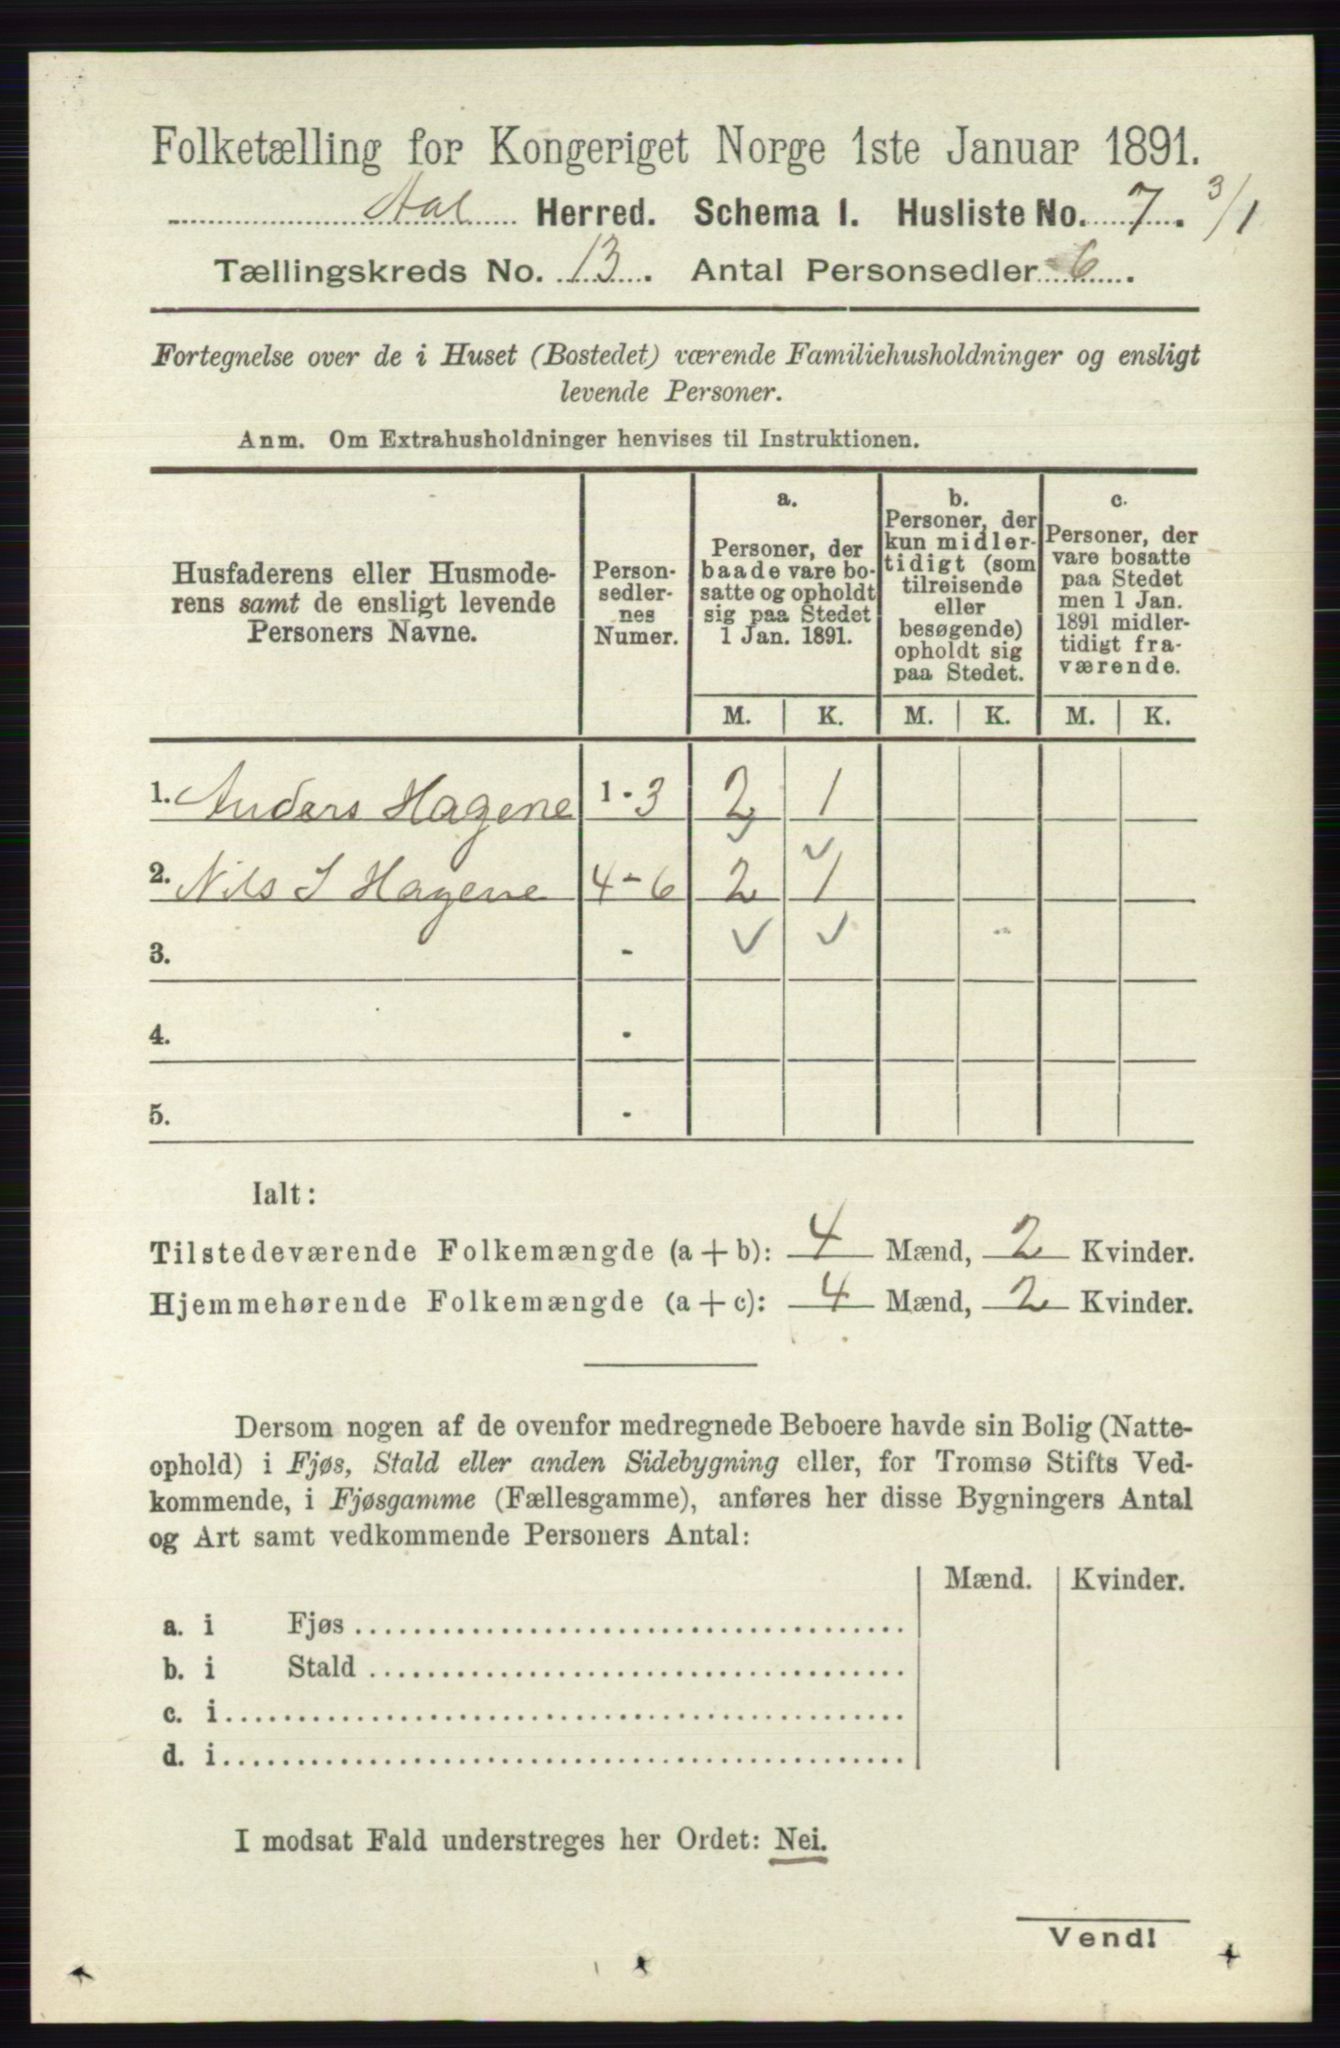 Folketælling for Kongeriget Norge 1ste Januar 1891.
Aal Herred. Schema 1. Husliste No. 7. 3/1
Tællingskreds No. 13. Antal Personsedler 6.
Fortegnelse over de i Huset (Bostedet) værende Familiehusholdninger og ensligt
levende Personer.
Anm. Om Extrahusholdninger henvises til Instruktionen.
Husfaderens eller Husmode-
rens samt de ensligt levende
Personers Navne.
Person-
sedler-
nes
Numer.
a.
Personer, der
baade vare bo-
satte og opholdt
sig paa Stedet
1 Jan. 1891.
b.
Personer, der
kun midler-
tidigt (som
tilreisende
eller
besøgende)
opholdt sig
paa Stedet.
c.
Personer, der
vare bosatte
paa Stedet
men 1 Jan.
1891 midler-
tidigt fra-
værende.
M. K. M. K. M. K.
1. Anders Hagene 1-3 2 1
2. Nils S Hagene 4-6 2 1
3. -
4. -
5. -
Ialt:
Tilstedeværende Folkemængde (a + b): 4 Mænd, 2 Kvinder.
Hjemmehørende Folkemængde (a + c): 4 Mænd, 2 Kvinder.
Dersom nogen af de ovenfor medregnede Beboere havde sin Bolig (Natte-
ophold) i Fjøs, Stald eller anden Sidebygning eller, for Tromsø Stifts Ved-
kommende, i Fjøsgamme (Fællesgamme), anføres her disse Bygningers Antal
og Art samt vedkommende Personers Antal:
Mænd. Kvinder.
a. i Fjøs
b. i Stald
c. i
d. i
I modsat Fald understreges her Ordet: Nei.
Vend!